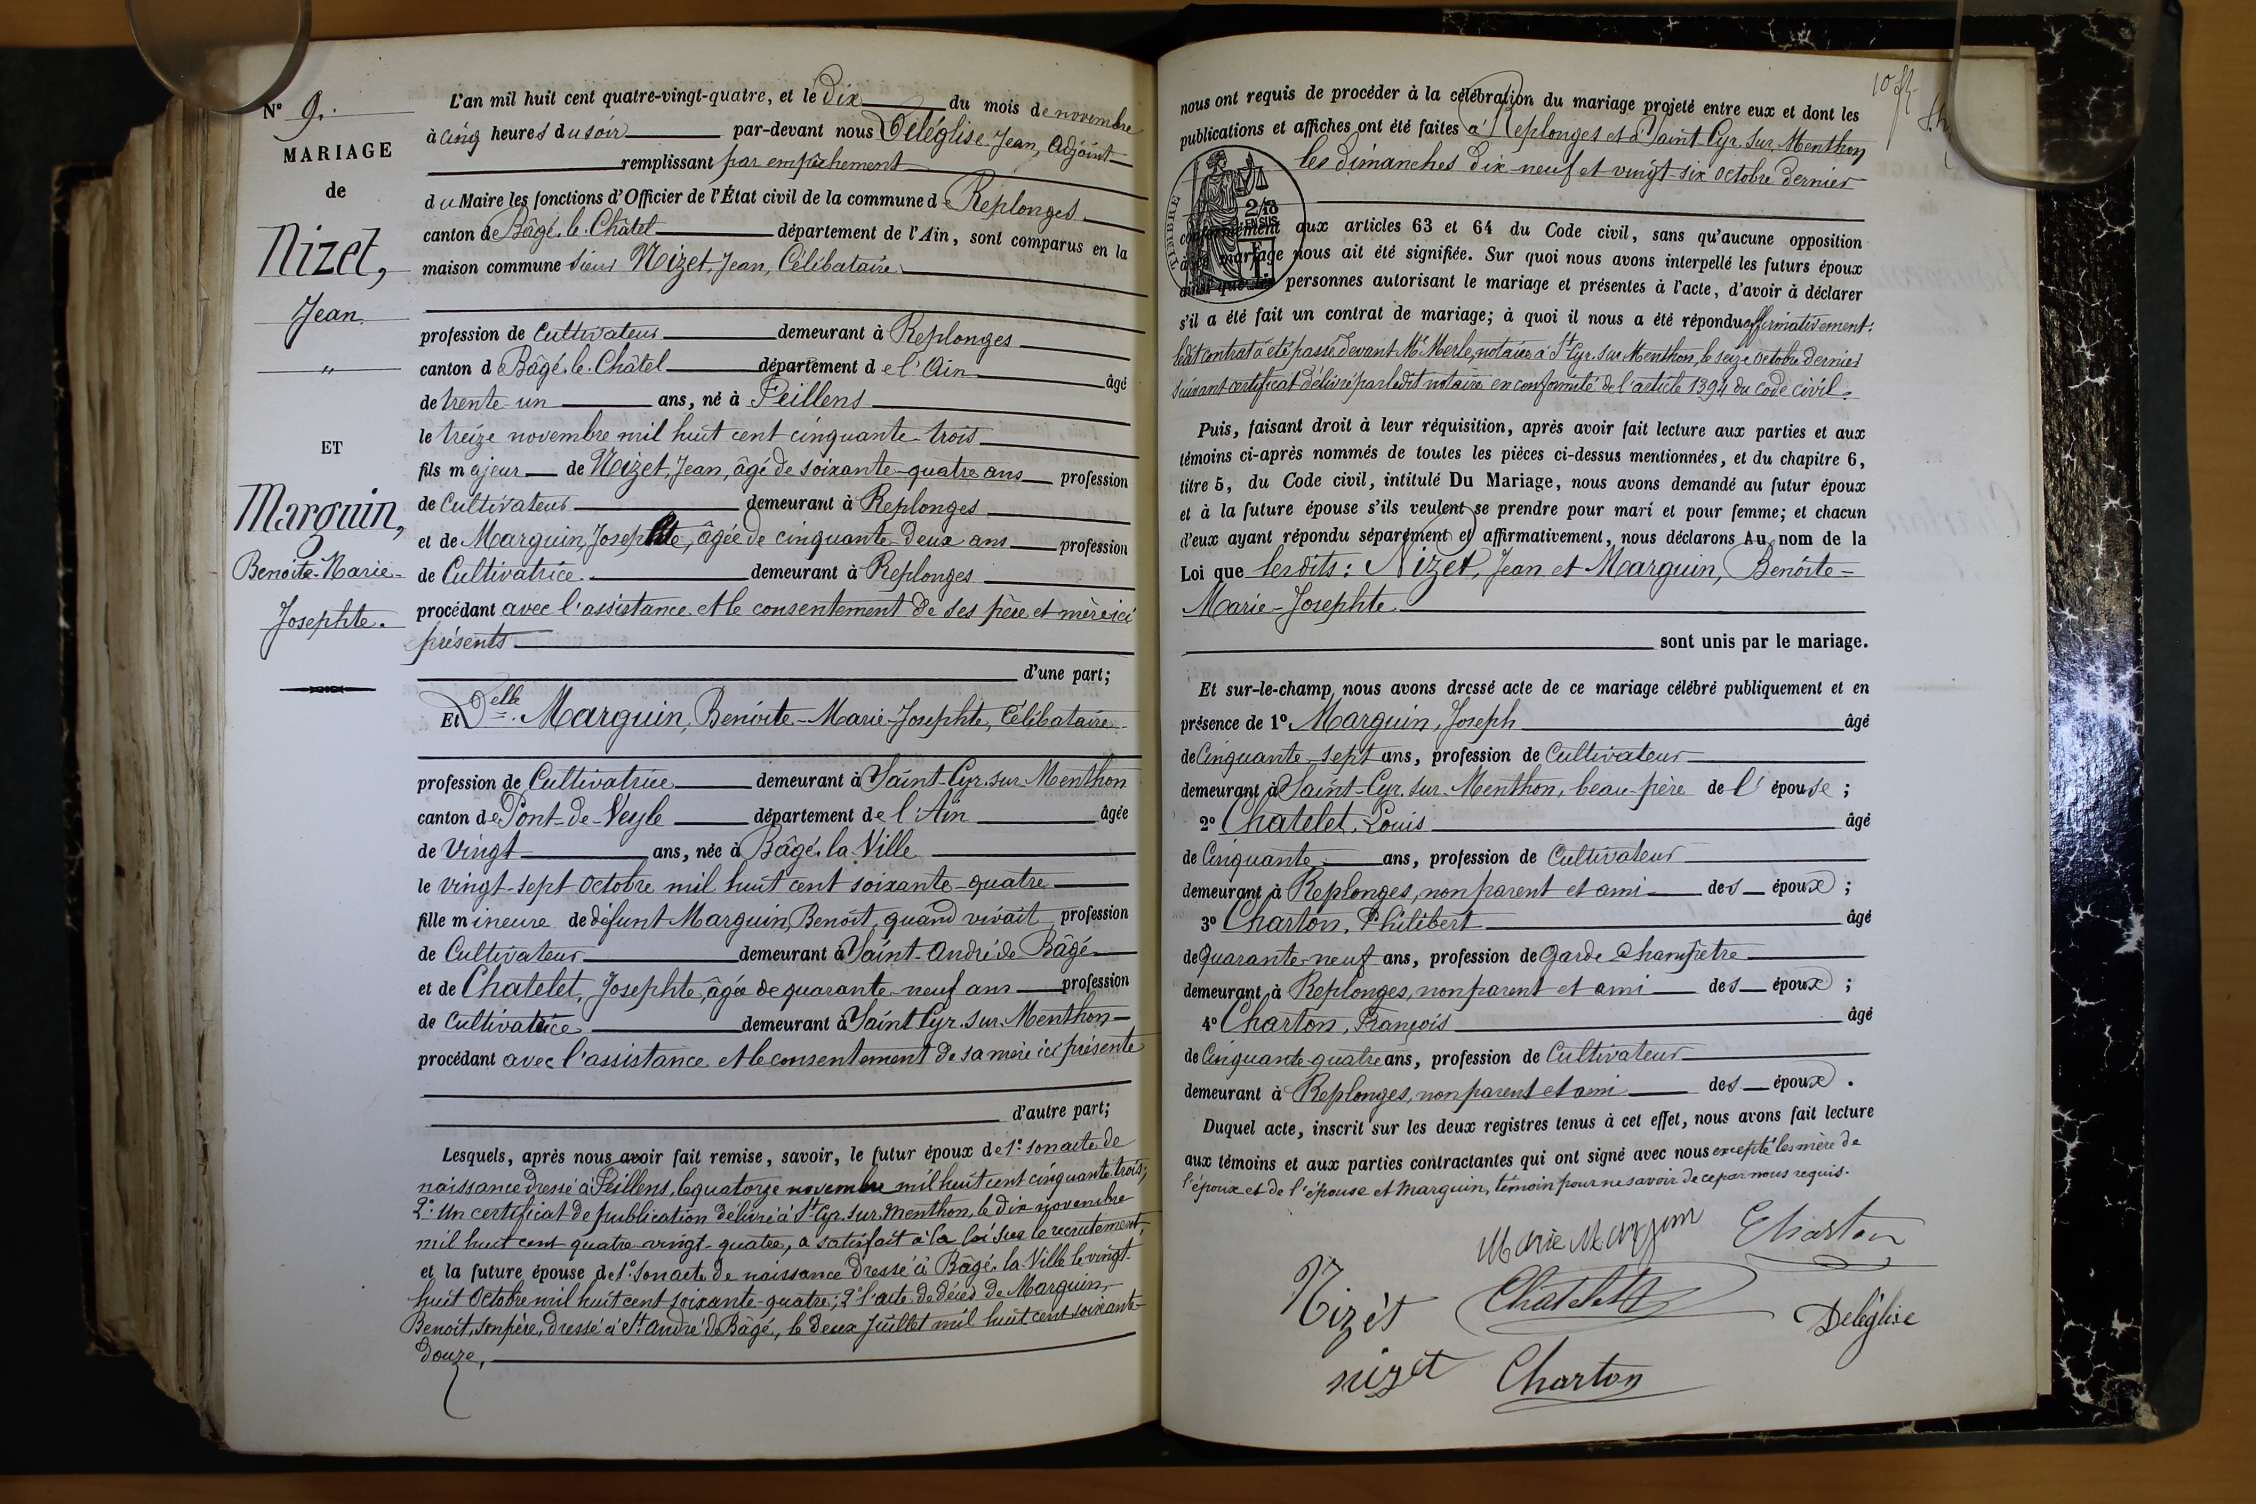 N° 9.
MARIAGE
de
Nizet,
Jean
"
ET
Marguin,
Benoite-Marie-
Josephte.
L'an mil huit cent quatre-vingt-quatre, et le Dix du mois de novembre
à cinq heures du soir par-devant nous Deléglise Jean, Adjoint
remplissant par empêchement
du Maire les fonctions d'Officier de l'État civil de la commune de Replonges
canton de Bâgé-le-Châtel département de l'Ain, sont comparus en la
maison commune Sieur Nizet, Jean, Célibataire
profession de Cultivateur demeurant à Replonges
canton d Bâgé-le-Châtel département de l'Ain âgé
de trente-un ans, né à Feillens
le treize novembre mil huit cent cinquante trois
fils majeur de Nizet, Jean, âgé de soixante-quatre ans profession
de Cultivateur demeurant à Replonges
et de Marguin, Josephte, âgée de cinquante deux ans profession
de Cultivatrice demeurant à Replonges
procédant avec l'assistance et le consentement de ses père et mère ici
présents
d'une part;
Et Delle Marguin, Benoite-Marie-Josephte, Célibataire
profession de Cultivatrice demeurant à Saint-Cyr-sur-Menthon
canton de Pont-de-Veyle département de l'Ain âgée
de Vingt ans, née à Bâgé-la-Ville
le vingt-sept Octobre mil huit cent soixante-quatre
fille mineure de défunt Marguin, Benoit, quand vivait profession
de Cultivateur demeurant à Saint-André-de-Bâgé
et de Chatelet, Josephte, âgée de quarante-neuf ans profession
de Cultivatrice demeurant à Saint Cyr-sur-Menthon
procédant avec l'assistance et le consentement de sa mère ici présente
d'autre part;
Lesquels, après nous avoir fait remise, savoir, le futur époux de 1° son acte de
naissance dressé à Feillens, le quatorze novembre mil huit cent cinquante trois;
2° Un certificat de publication délivré à St Cyr-sur-Menthon, le dix novembre
mil huit cent quatre-vingt-quatre, a satisfait à la loi sur le recrutement,
et la future épouse de 1° Son acte de naissance dressé à Bâgé-la-Ville le vingt-
huit Octobre mil huit cent soixante-quatre; 2° l'acte de décès de Marguin,
Benoit, son père, dressé à St André-de-Bâgé, le deux Juillet mil huit cent soixante-
douze,
nous ont requis de procéder à la célébration du mariage projeté entre eux et dont les
publications et affiches ont été faites à Replonges et à Saint-Cyr-sur-Menthon
les dimanches dix-neuf et vingt-six octobre dernier
TIMBRE
2/10
EN SUS
conformément aux articles 63 et 64 du Code civil, sans qu'aucune opposition
audit mariage nous ait été signifiée. Sur quoi nous avons interpellé les futurs époux
ainsi que les personnes autorisant le mariage et présentes à l'acte, d'avoir à déclarer
s'il a été fait un contrat de mariage; à quoi il nous a été répondu affirmativement:
ledit contrat a été passé devant Me Merle, notaire à St Cyr-sur-Menthon, le seize octobre dernier
suivant certificat délivré par ledit notaire en conformité de l'article 1394 du Code civil.
Puis, faisant droit à leur réquisition, après avoir fait lecture aux parties et aux
témoins ci-après nommés de toutes les pièces ci-dessus mentionnées, et du chapitre 6,
titre 5, du Code civil, intitulé Du Mariage, nous avons demandé au futur époux
et à la future épouse s'ils veulent se prendre pour mari et pour femme; et chacun
d'eux ayant répondu séparément et affirmativement, nous déclarons Au nom de la
Loi que lesdits: Nizet, Jean et Marguin, Benoite-
Marie-Josephte
sont unis par le mariage.
Et sur-le-champ nous avons dressé acte de ce mariage célébré publiquement et en
présence de 1° Marguin, Joseph âgé
de Cinquante-sept ans, profession de Cultivateur
demeurant à Saint-Cyr-sur-Menthon, beau-père de l'épouse;
2° Chatelet, Louis âgé
de Cinquante ans, profession de Cultivateur
demeurant à Replonges, non parent et ami des époux;
3° Charton, Philibert âgé
de Quarante-neuf ans, profession de Garde Champêtre
demeurant à Replonges, non parent et ami des époux;
4° Charton, François âgé
de Cinquante-quatre ans, profession de Cultivateur
demeurant à Replonges, non parent et ami des époux.
Duquel acte, inscrit sur les deux registres tenus à cet effet, nous avons fait lecture
aux témoins et aux parties contractantes qui ont signé avec nous excepté les mère de
l'époux et de l'épouse et Marguin, témoin pour ne savoir de ce par nous requis.
Marie Marguin Charton
Nizet Chatelet Deléglise
nizet Charton